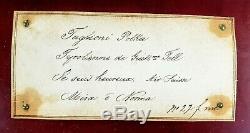 Taglioni Polka
Tyrolienne de Guill.me Tell
Je suis heureux, Air Suisse
Mira o Norma
No 27 f.